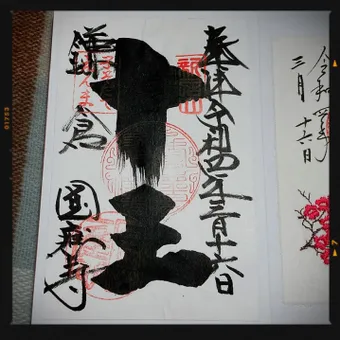 奉拝 令和四年三月十六日
新居山
十王
鎌倉
圓應寺
令和四年
三月
十六日